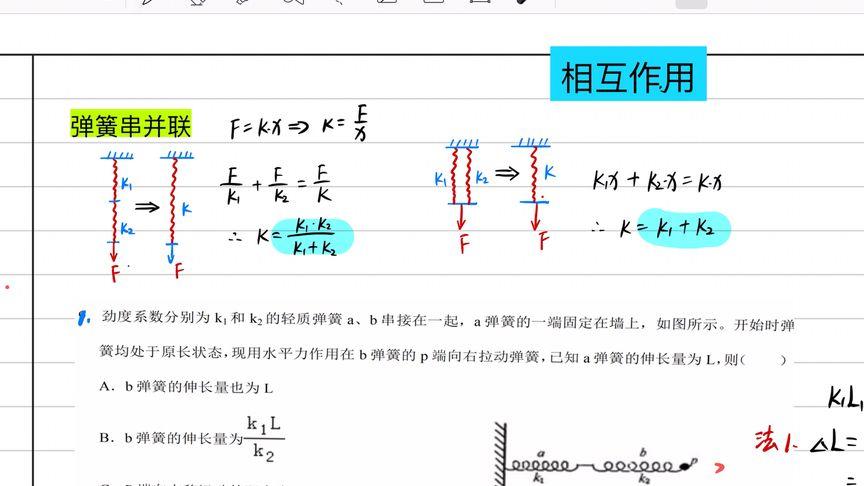 相互作用
弹簧串并联
F=K·x⇒K=F/x
K₁
K₂
⇒
K
F
F
F/K₁+F/K₂=F/K
∴ K=K₁·K₂/K₁+K₂
K₁
K₂
⇒
K
F
F
K₁x+K₂·x=K·x
∴ K=K₁+K₂
1. 劲度系数分别为 k₁ 和 k₂ 的轻质弹簧 a、b 串接在一起，a 弹簧的一端固定在墙上，如图所示。开始时弹
簧均处于原长状态，现用水平力作用在 b 弹簧的 p 端向右拉动弹簧，已知 a 弹簧的伸长量为 L，则（　　）
A．b 弹簧的伸长量也为 L
B．b 弹簧的伸长量为k₁L/k₂
a
b
P
k₁
k₂
K₁L₁
法1. △L=
=